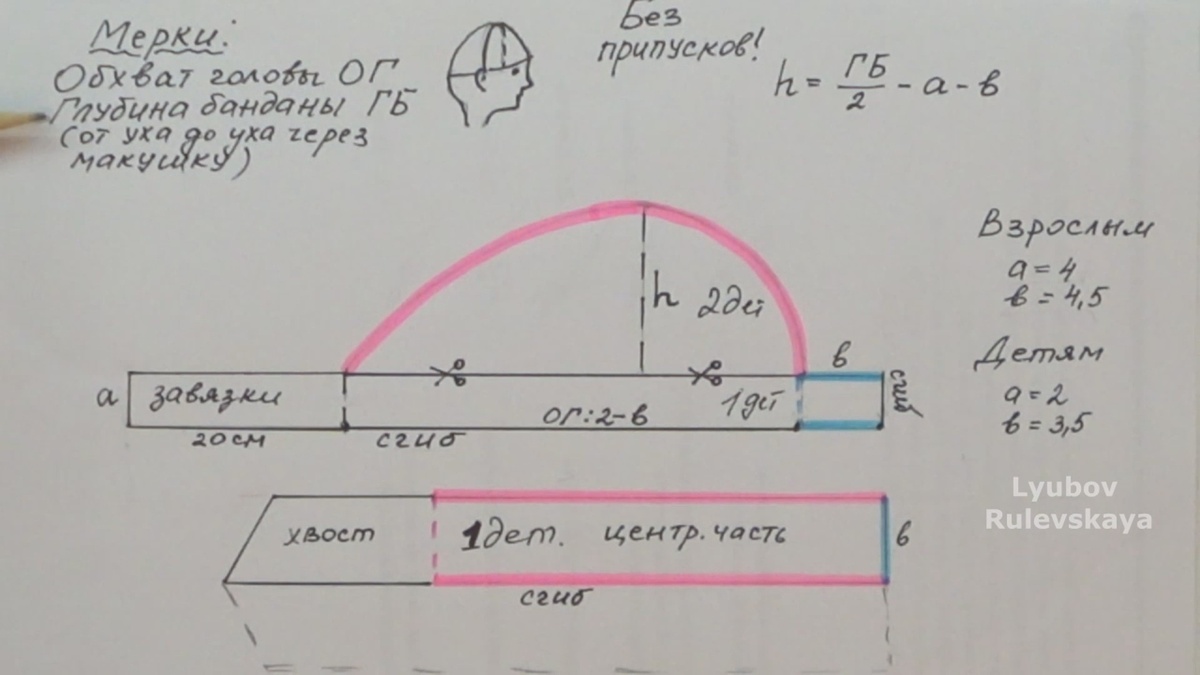 Мерки:
Обхват головы ОГ
Глубина банданы ГБ
(от уха до уха через
макушку)
Без
припусков!
h = ГБ/2 - а - в
Взрослым
а = 4
в = 4,5
Детям
а = 2
в = 3,5
h 2дет
в
а завязки
ОГ:2-в
1дет
сгиб
20см
сгиб
хвост
1дет. центр. часть
в
сгиб
Lyubov
Rulevskaya